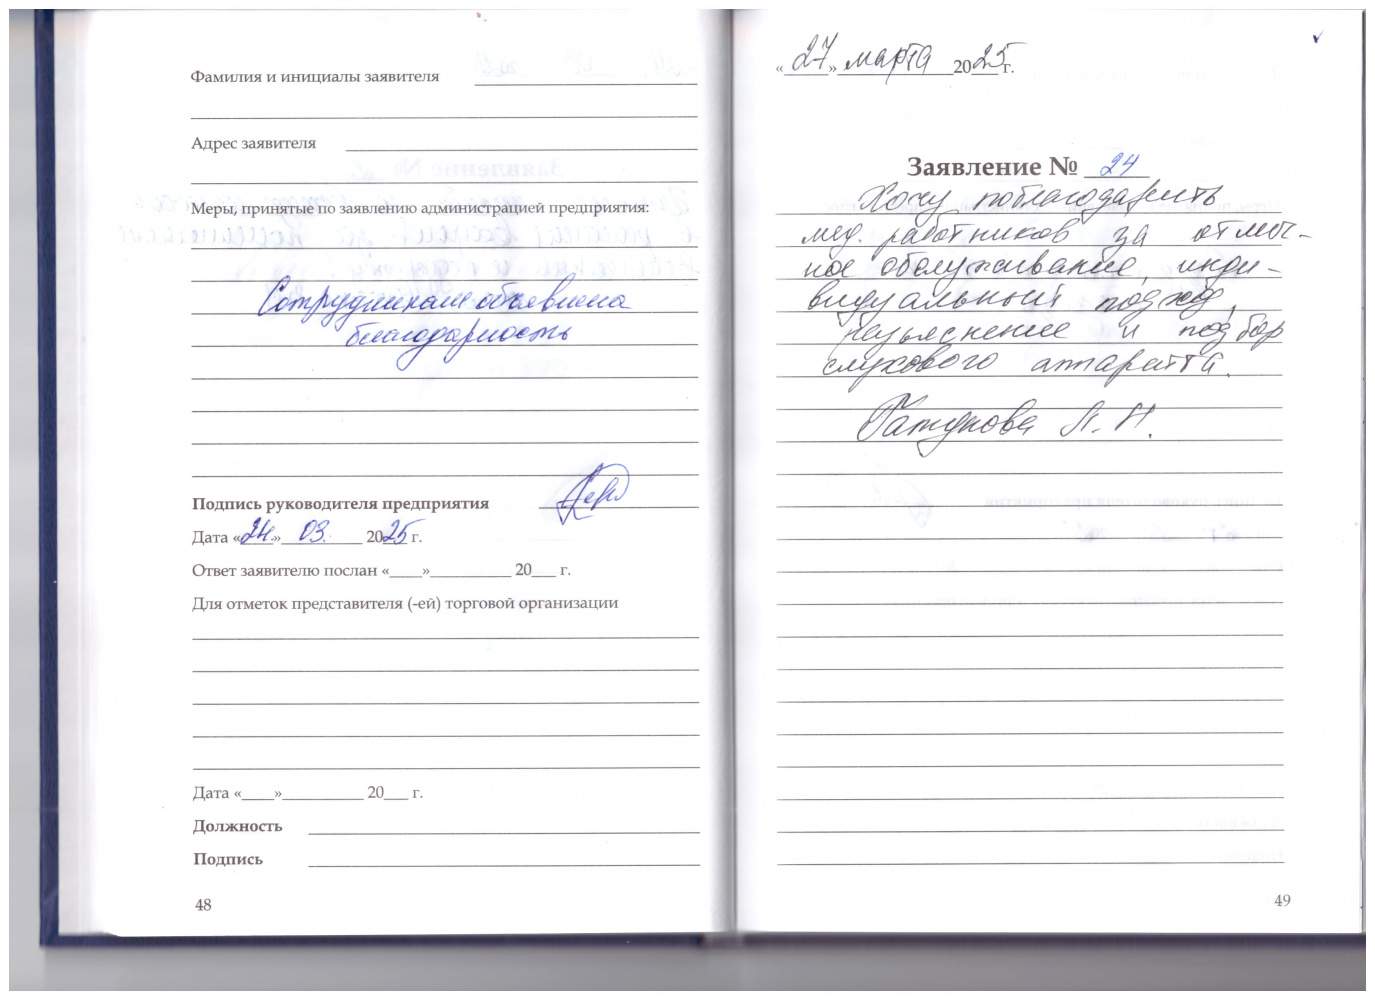 Фамилия и инициалы заявителя
Адрес заявителя
Меры, принятые по заявлению администрацией предприятия:
Сотрудникам объявлена
благодарность
Подпись руководителя предприятия
Дата «24.» 03. 2025 г.
Ответ заявителю послан «____»__________ 20___ г.
Для отметок представителя (-ей) торговой организации
Дата «____»__________ 20___ г.
Должность
Подпись
48
«27» марта 2025 г.
Заявление № 24
Хочу поблагодарить
мед. работников за отлич-
ное обслуживание инди-
видуальный подход,
разъяснение и подбор
слухового аппарата.
Л. Н.
49